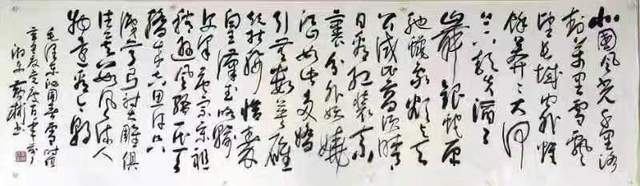 北國風光千里冰
封萬里雪飄
望長城內外惟
餘莽莽大河
上下頓失滔滔
山舞銀蛇原
馳蠟象欲與天
公試比高須晴
日看紅裝素
裹分外妖嬈
江山如此多嬌
引無數英雄
競折腰惜秦
皇漢武略輸
文采唐宗宋祖
稍遜風騷一代天
驕成吉思汗只
識彎弓射大雕俱
往矣數風流人
物還看今朝
毛澤東沁園春雪